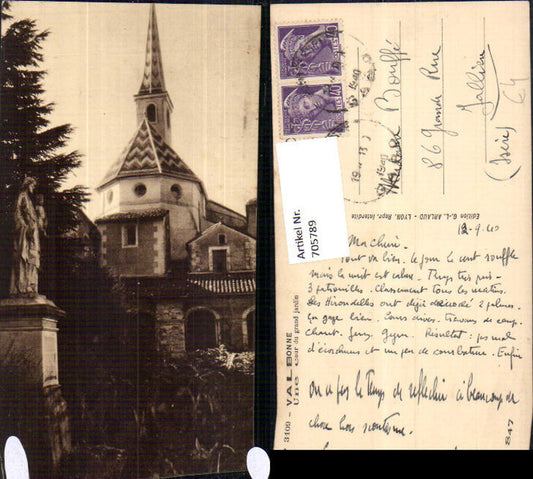 Artikel Nr.
705789
Bouffé
86 Grande Rue
Jallieu
(Isère)
64
Edition G.-L. ARLAUD - LYON, Repr. Interdite
12-9.40
Ma chérie.
Tout va bien. Le jour le vent souffle
mais la nuit est calme. Temps très pris -
3 patrouilles. Classement tous les matins.
Les Hirondelles ont déjà 2 palmes.
ça gaze bien. Cours divers. travaux de camp.
Chant. Jeux. Gym. Résultat : pas mal
et un peu de courbature. Enfin
on a pas le temps de réfléchir à beaucoup de
chose hors
3100 - VALBONNE
Une cour du grand jardin
847